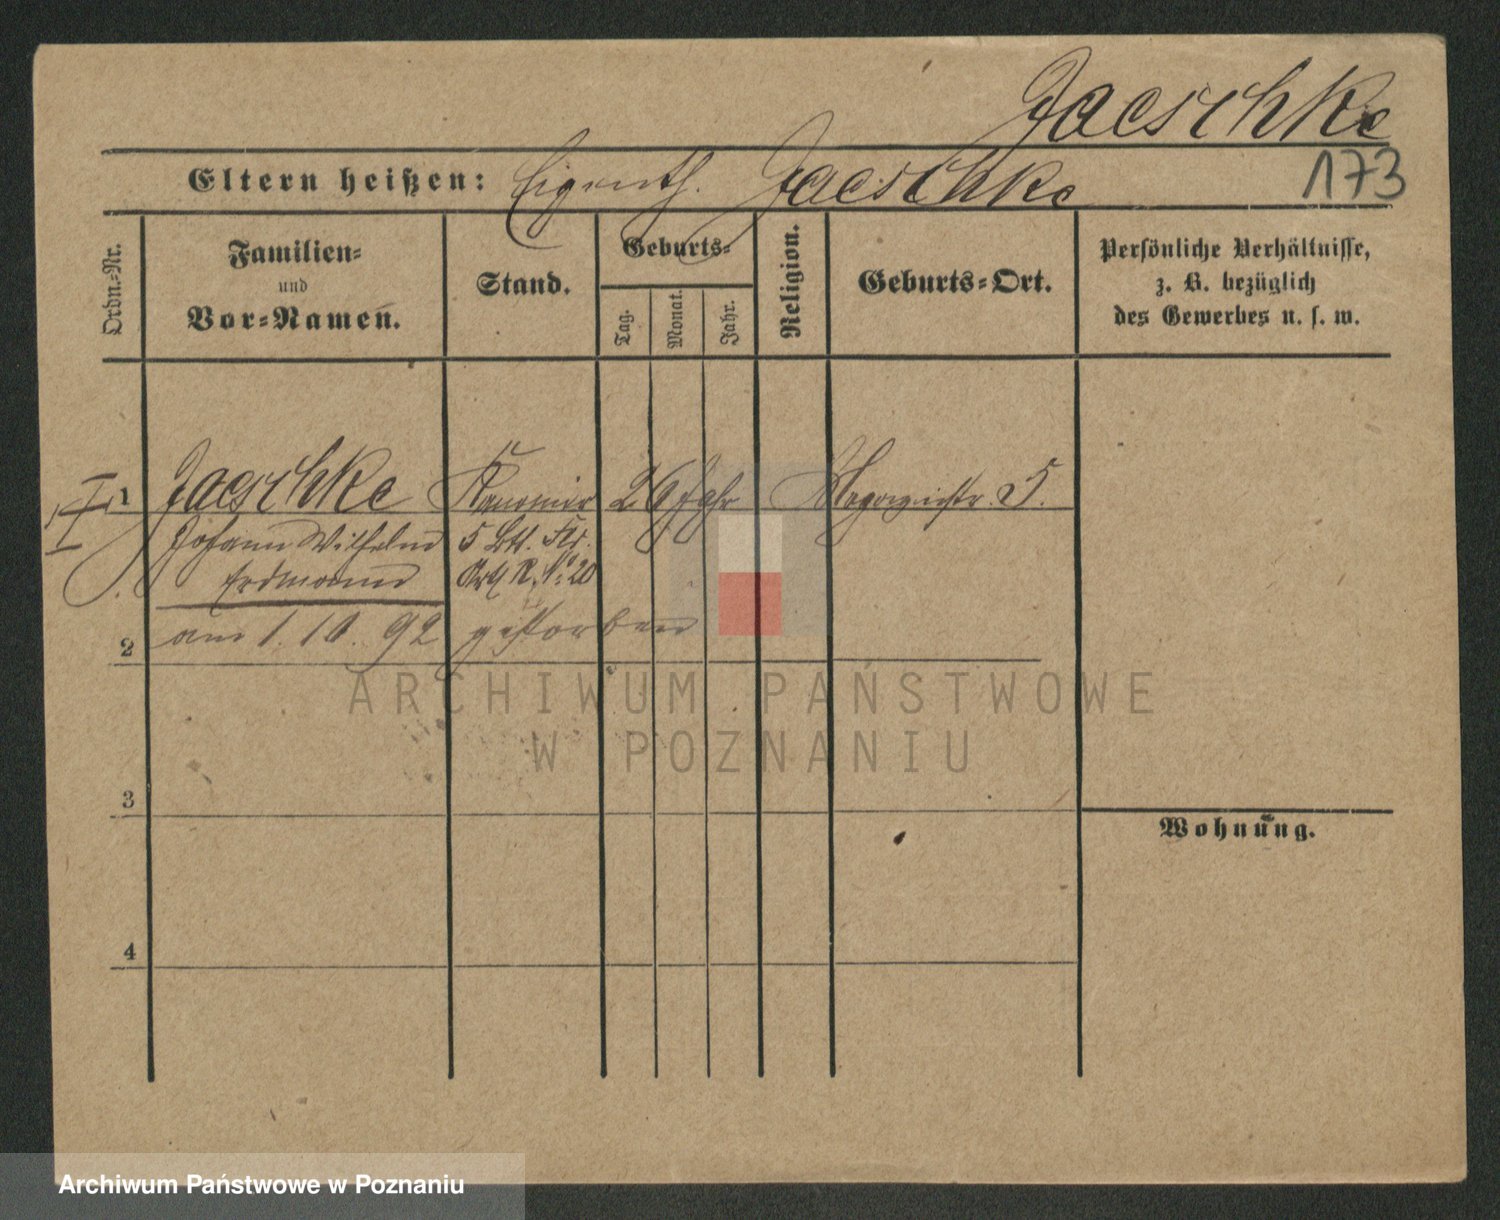 Jaeschke
173
Eltern heißen: Eigenth. Jaeschke
Ordn.=Nr.
Familien=
und
Vor=Namen.
Stand.
Geburts=
Tag.
Monat.
Jahr.
Religion.
Geburts=Ort.
Persönliche Verhältnisse,
z. B. bezüglich
des Gewerbes u. s. w.
1 Jaeschke Kanonier 26 Jahr Magazinstr. 5.
Johann Wilhelm 5 Btt.
Erdmann Art. R. No. 20
am 1. 10. 92 gestorben
2
3
4
Wohnung.
ARCHIWUM PAŃSTWOWE
W POZNANIU
Archiwum Państwowe w Poznaniu